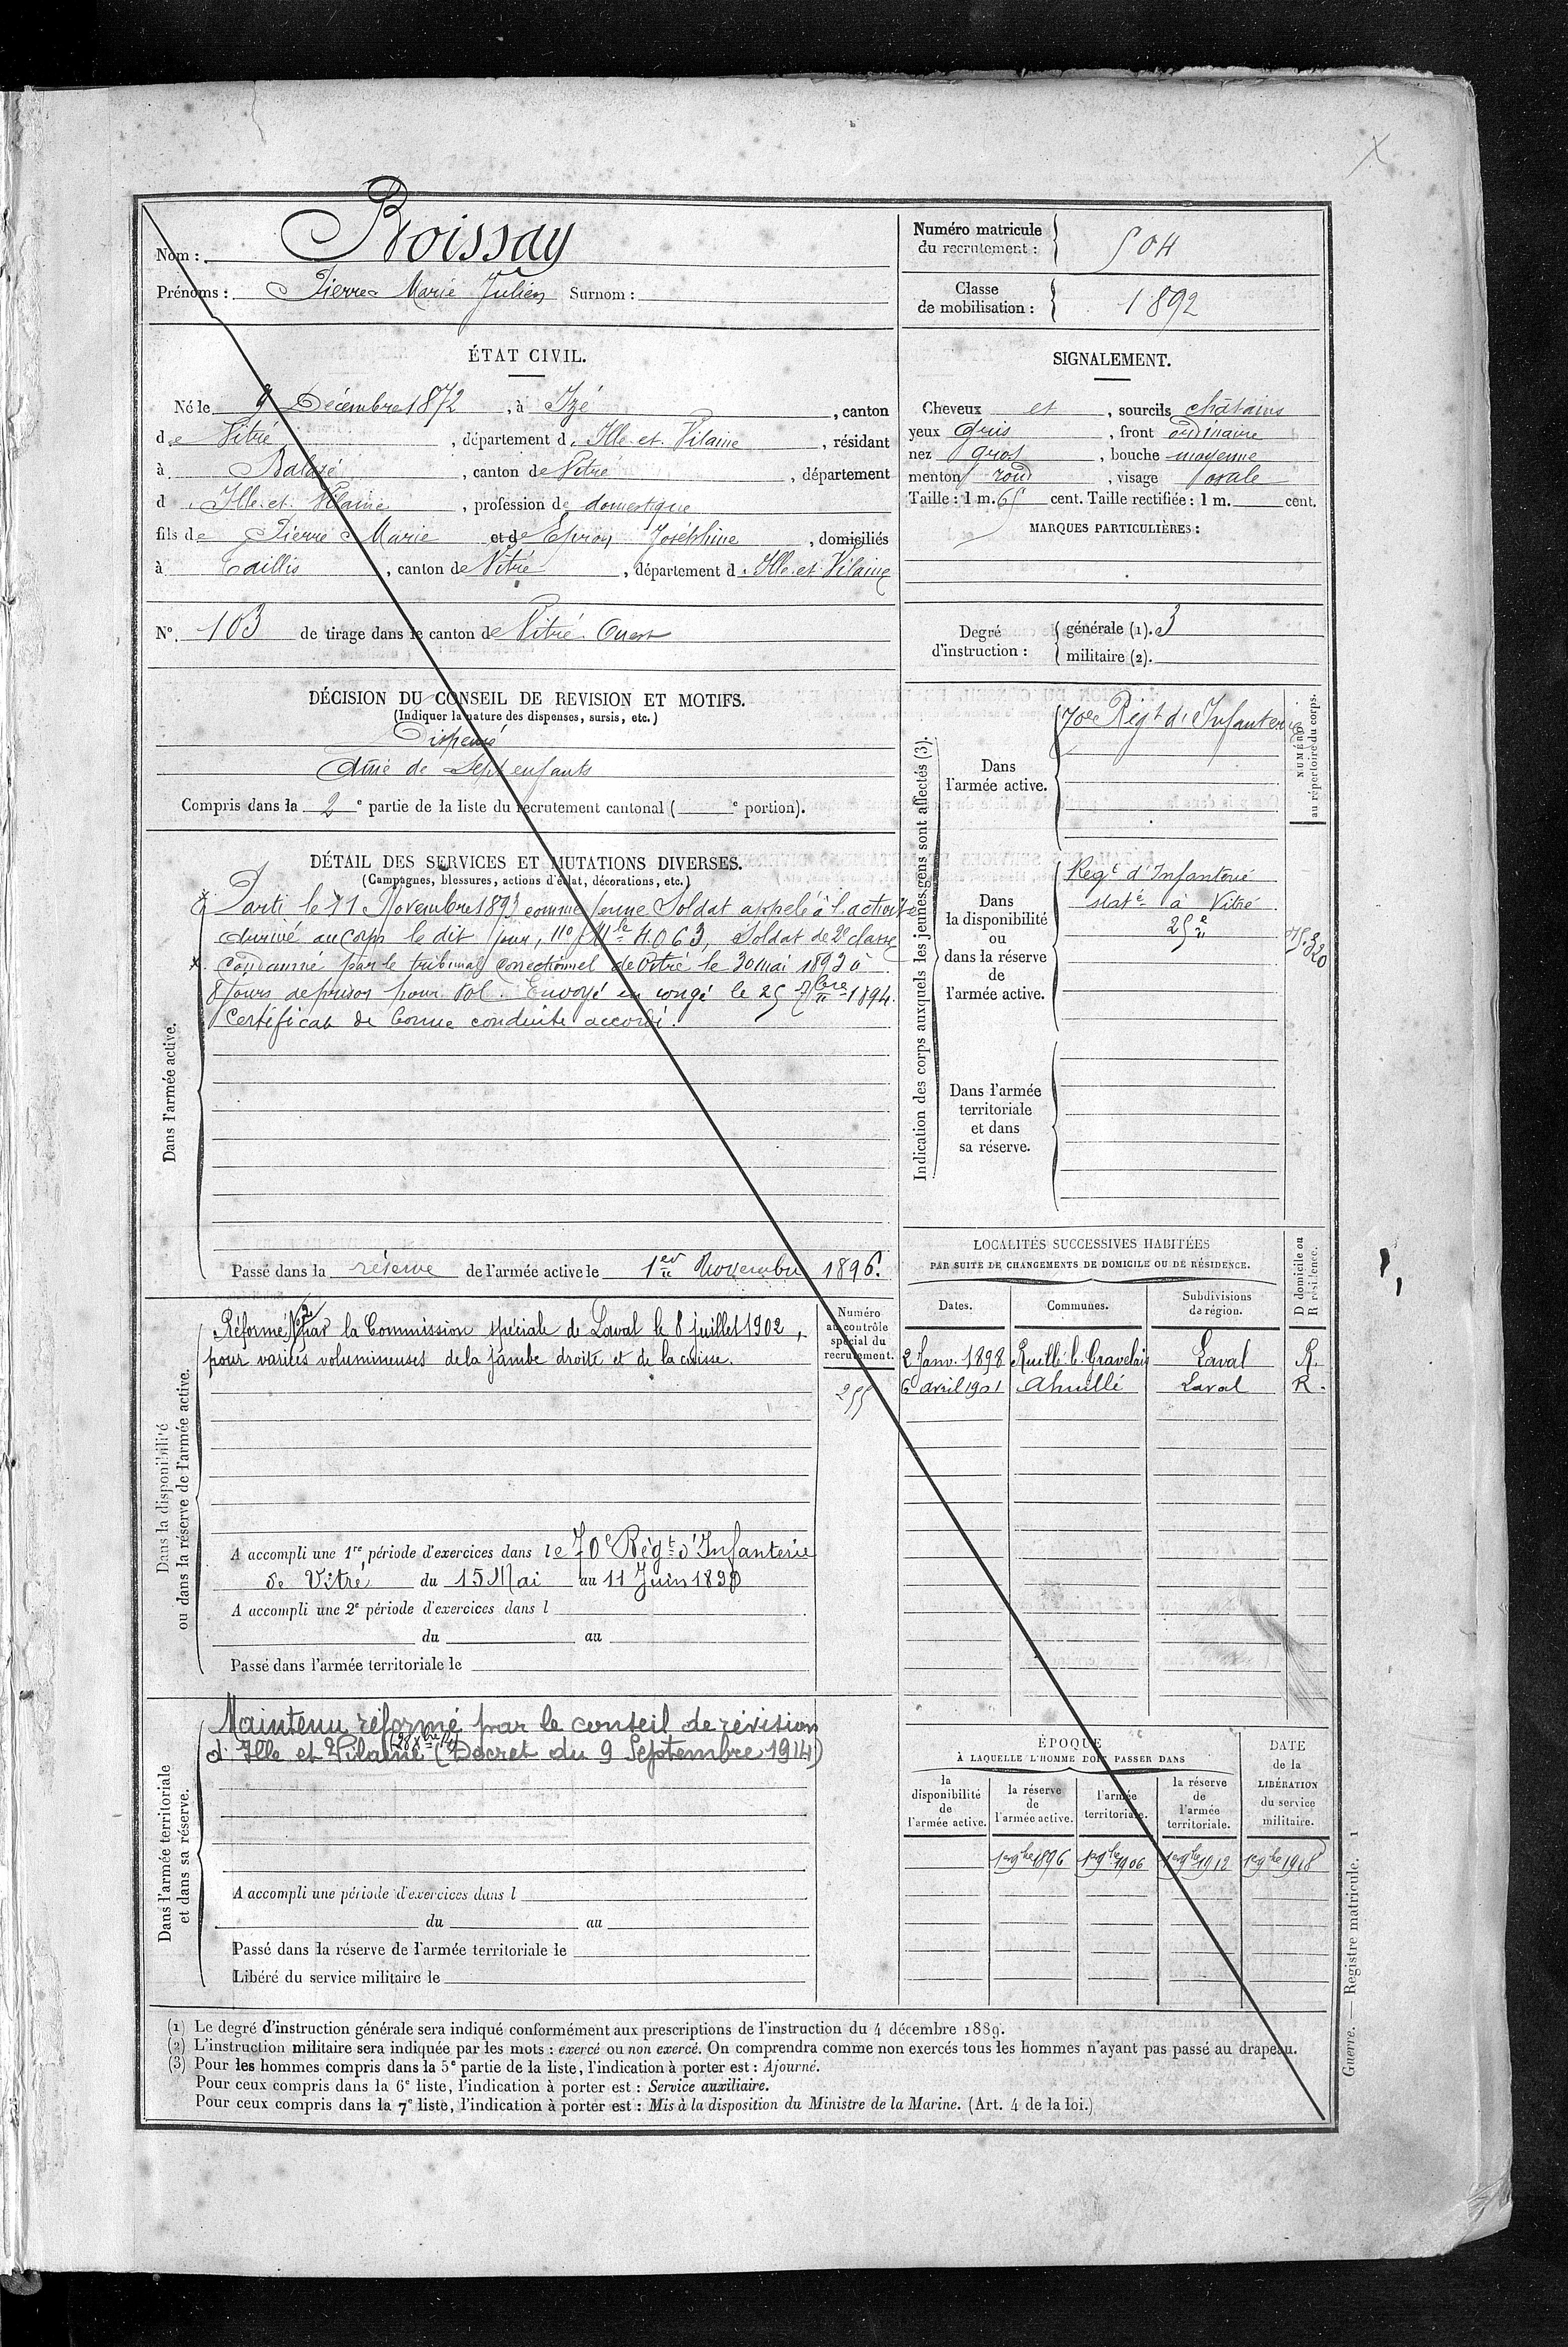 Nom : Boissay
Prénoms : Pierre Marie Julien Surnom :
Numéro matricule du recrutement : 504
Classe de mobilisation : 1892
ÉTAT CIVIL.
Né le 9 Décembre 1872, à Izé, canton
de Vitré, département d'Ille-et-Vilaine, résidant
à Balazé, canton de Vitré, département
d'Ille-et-Vilaine, profession de domestique
fils de Pierre Marie et de Epron Joséphine, domiciliés
à Taillis, canton de Vitré, département d'Ille-et-Vilaine
N° 103 de tirage dans le canton de Vitré Ouest
SIGNALEMENT.
Cheveux et, sourcils châtains
yeux gris, front ordinaire
nez gros, bouche moyenne
menton rond, visage ovale
Taille : 1 m. 65 cent. Taille rectifiée : 1 m. cent.
MARQUES PARTICULIÈRES :
Degré d'instruction : générale (1). 3
militaire (2).
DÉCISION DU CONSEIL DE REVISION ET MOTIFS.
(Indiquer la nature des dispenses, sursis, etc.)
Dispensé
Aîné de Sept enfants
Compris dans la 2e partie de la liste du recrutement cantonal ( e portion).
DÉTAIL DES SERVICES ET MUTATIONS DIVERSES.
(Campagnes, blessures, actions d'éclat, décorations, etc.)
Dans l'armée active.
Parti le 11 Novembre 1893 comme jeune Soldat appelé à l'activité
Arrivé au corps le dit jour, no Mle 4.063, Soldat de 2e classe
Condamné par le tribunal correctionnel de Vitré le 30 mai 1893 à
8 jours de prison pour vol. Envoyé en congé le 25 7bre 1894.
Certificat de bonne conduite accordé.
Passé dans la réserve de l'armée active le 1er Novembre 1896.
Indication des corps auxquels les jeunes gens sont affectés (3).
NUMÉRO au répertoire du corps.
Dans l'armée active.
70e Régt d'Infanterie
Dans la disponibilité ou dans la réserve de l'armée active.
Regt d'Infanterie
statné à Vitré
25e
Dans l'armée territoriale et dans sa réserve.
LOCALITÉS SUCCESSIVES HABITÉES
PAR SUITE DE CHANGEMENTS DE DOMICILE OU DE RÉSIDENCE.
Dates. Communes. Subdivisions de région. D domicile ou R résidence.
2 Janv. 1898 Ruillé-le-Gravelais Laval R.
6 avril 1901 Ahuillé Laval R.
Dans la disponibilité ou dans la réserve de l'armée active.
Réformé No 2 par la Commission spéciale de Laval le 8 juillet 1902,
pour varices volumineuses de la jambe droite et de la cuisse.
Numéro au contrôle spécial du recrutement.
255
A accompli une 1re période d'exercices dans le 70e Régt d'Infanterie
de Vitré du 15 Mai au 11 Juin 1898
A accompli une 2e période d'exercices dans l
du au
Passé dans l'armée territoriale le
Dans l'armée territoriale et dans sa réserve.
Maintenu réformé par le conseil de révision
(28 Xbre 14)
d'Ille et Vilaine (Décret du 9 Septembre 1914)
A accompli une période d'exercices dans l
du au
Passé dans la réserve de l'armée territoriale le
Libéré du service militaire le
ÉPOQUE
À LAQUELLE L'HOMME DOIT PASSER DANS
la disponibilité de l'armée active. la réserve de l'armée active. l'armée territoriale. la réserve de l'armée territoriale.
DATE de la LIBÉRATION du service militaire.
1er 9bre 1896 1er 9bre 1906 1er 9bre 1912 1er 9bre 1918
(1) Le degré d'instruction générale sera indiqué conformément aux prescriptions de l'instruction du 4 décembre 1889.
(2) L'instruction militaire sera indiquée par les mots : exercé ou non exercé. On comprendra comme non exercés tous les hommes n'ayant pas passé au drapeau.
(3) Pour les hommes compris dans la 5e partie de la liste, l'indication à porter est : Ajourné.
Pour ceux compris dans la 6e liste, l'indication à porter est : Service auxiliaire.
Pour ceux compris dans la 7e liste, l'indication à porter est : Mis à la disposition du Ministre de la Marine. (Art. 4 de la loi.)
Guerre. — Registre matricule. 1